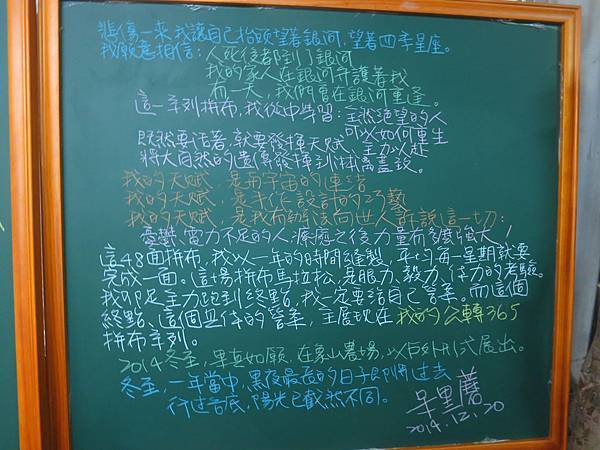 悲傷一來,我讓自己抬頭望著銀河,望著四季星座。
我願意相信:人死後都到了銀河
我的家人在銀河守護著我
有一天,我們會在銀河重逢。
這一系列拼布,我從中學習:全然絕望的人
可以如何重生
既然要活著,就要發揮天賦、全力以赴
將大自然的遺傳發揮到
我的天賦,是與宇宙的連結
我的天賦,是手作設計的巧藝
我的天賦,是我有辦法向世人訴說這一切:
憂鬱、電力不足的人,療癒之後力量有多麼強大!
這48面拼布,我以一年的時間縫製,平均每一星期就要
完成一面。這場拼布馬拉松,是眼力、毅力、体力的考驗。
我卯足全力跑到終點,我一定要給自己答案。而這個
終點、這個具体的答案,全展現在我的公轉365
拼布系列。
2014冬至,果真如願,在象山農場,以戶外形式展出。
冬至,一年當中,黑夜最長的日子即將過去
行過谷底,陽光已截然不同。
2014.12.20